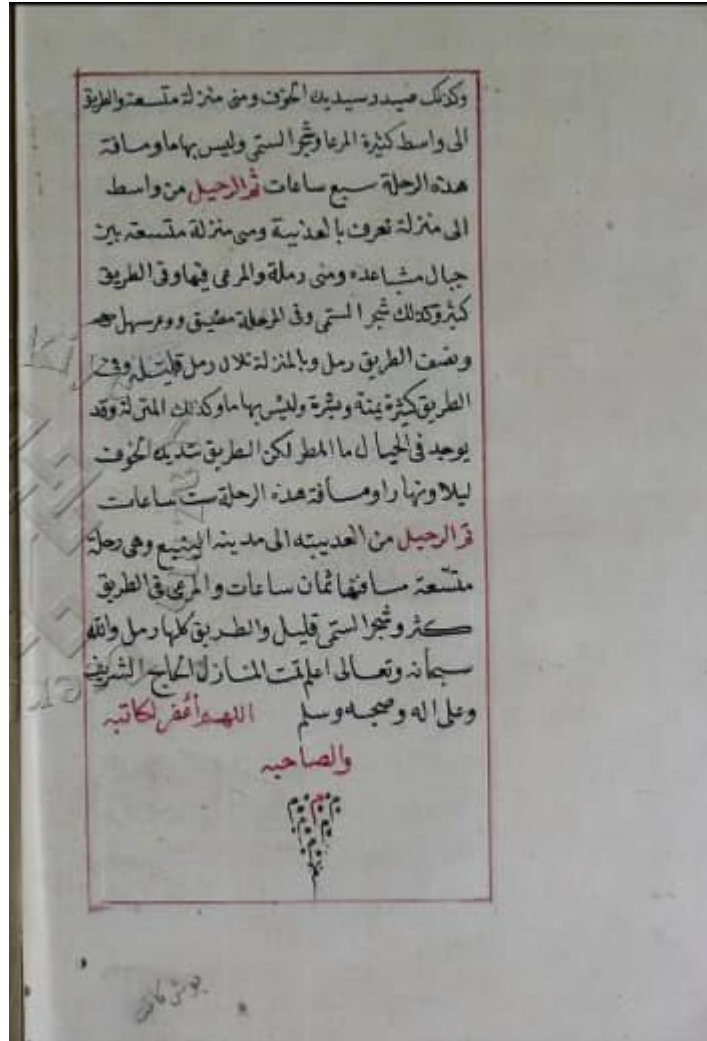 وكذلك شديد الخوف ومنى منزلة متسعة والطريق
الى واسط كثيرة المرعا وشجر الستمى وليس بها ما ومسافة
هذه الرحلة سبع ساعات ثم الرحيل من واسط
الى منزلة تعرف بالعذيبة ومى منزلة متسعه بين
جبال مشاعده ومنى رملة والمرعى فيها وفى الطريق
كثير وكذلك شجر الستمى وفى المرحلة مضيق ووعر سهل
ونصف الطريق رمل وبالمنزلة تلال رمل قليلة وفى
الطريق كثيرة يمنة ويسرة وليس بها ما وكذلك المنزلة وقد
يوجد فى الجبال ما المطر لكن الطريق شديد الخوف
ليلا ونهارا ومسافة هذه الرحلة ست ساعات
ثم الرحيل من العديبه الى مدينه الينبع وهى رحلة
متسعة مسافتها ثمان ساعات والمرعى فى الطريق
كثر وشجر الستمى قليل والطريق كلها رمل والله
سبحانه وتعالى اعلم تمت المنازل الحاج الشريف
وعلى اله وصحبه وسلم اللهم أغفر لكاتبه
والصاحبه
م م م